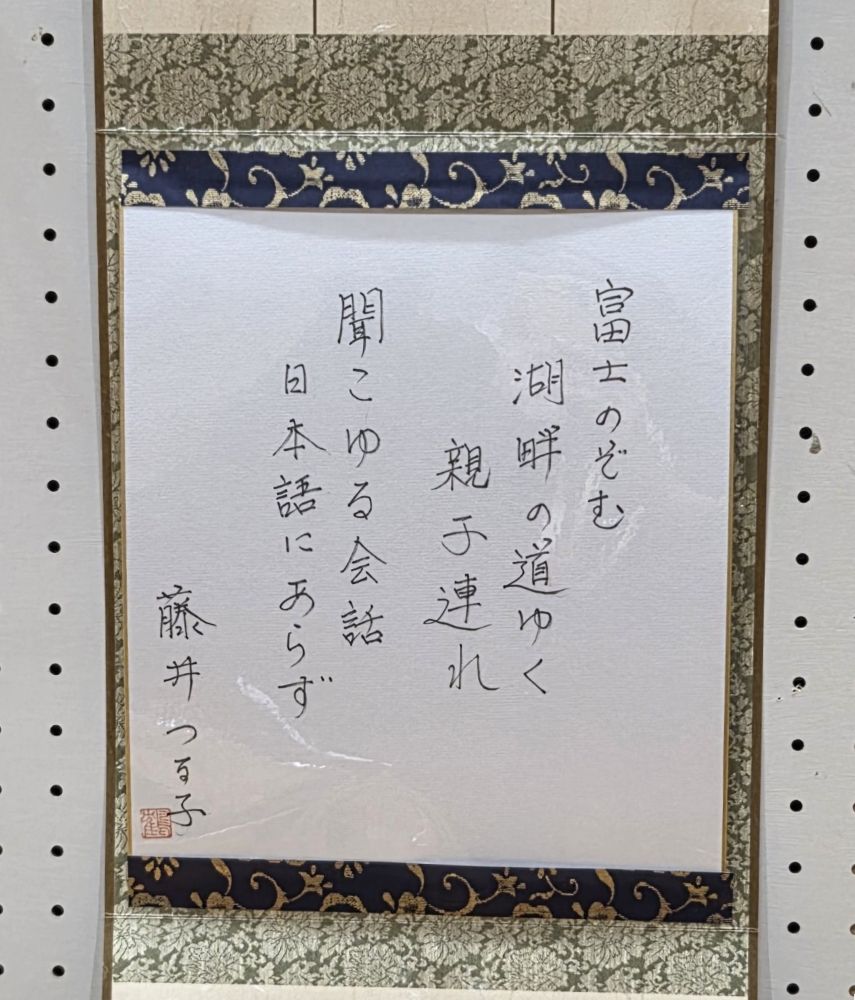 富士のぞむ
湖畔の道ゆく
親子連れ
聞こゆる会話
日本語にあらず
藤井つる子